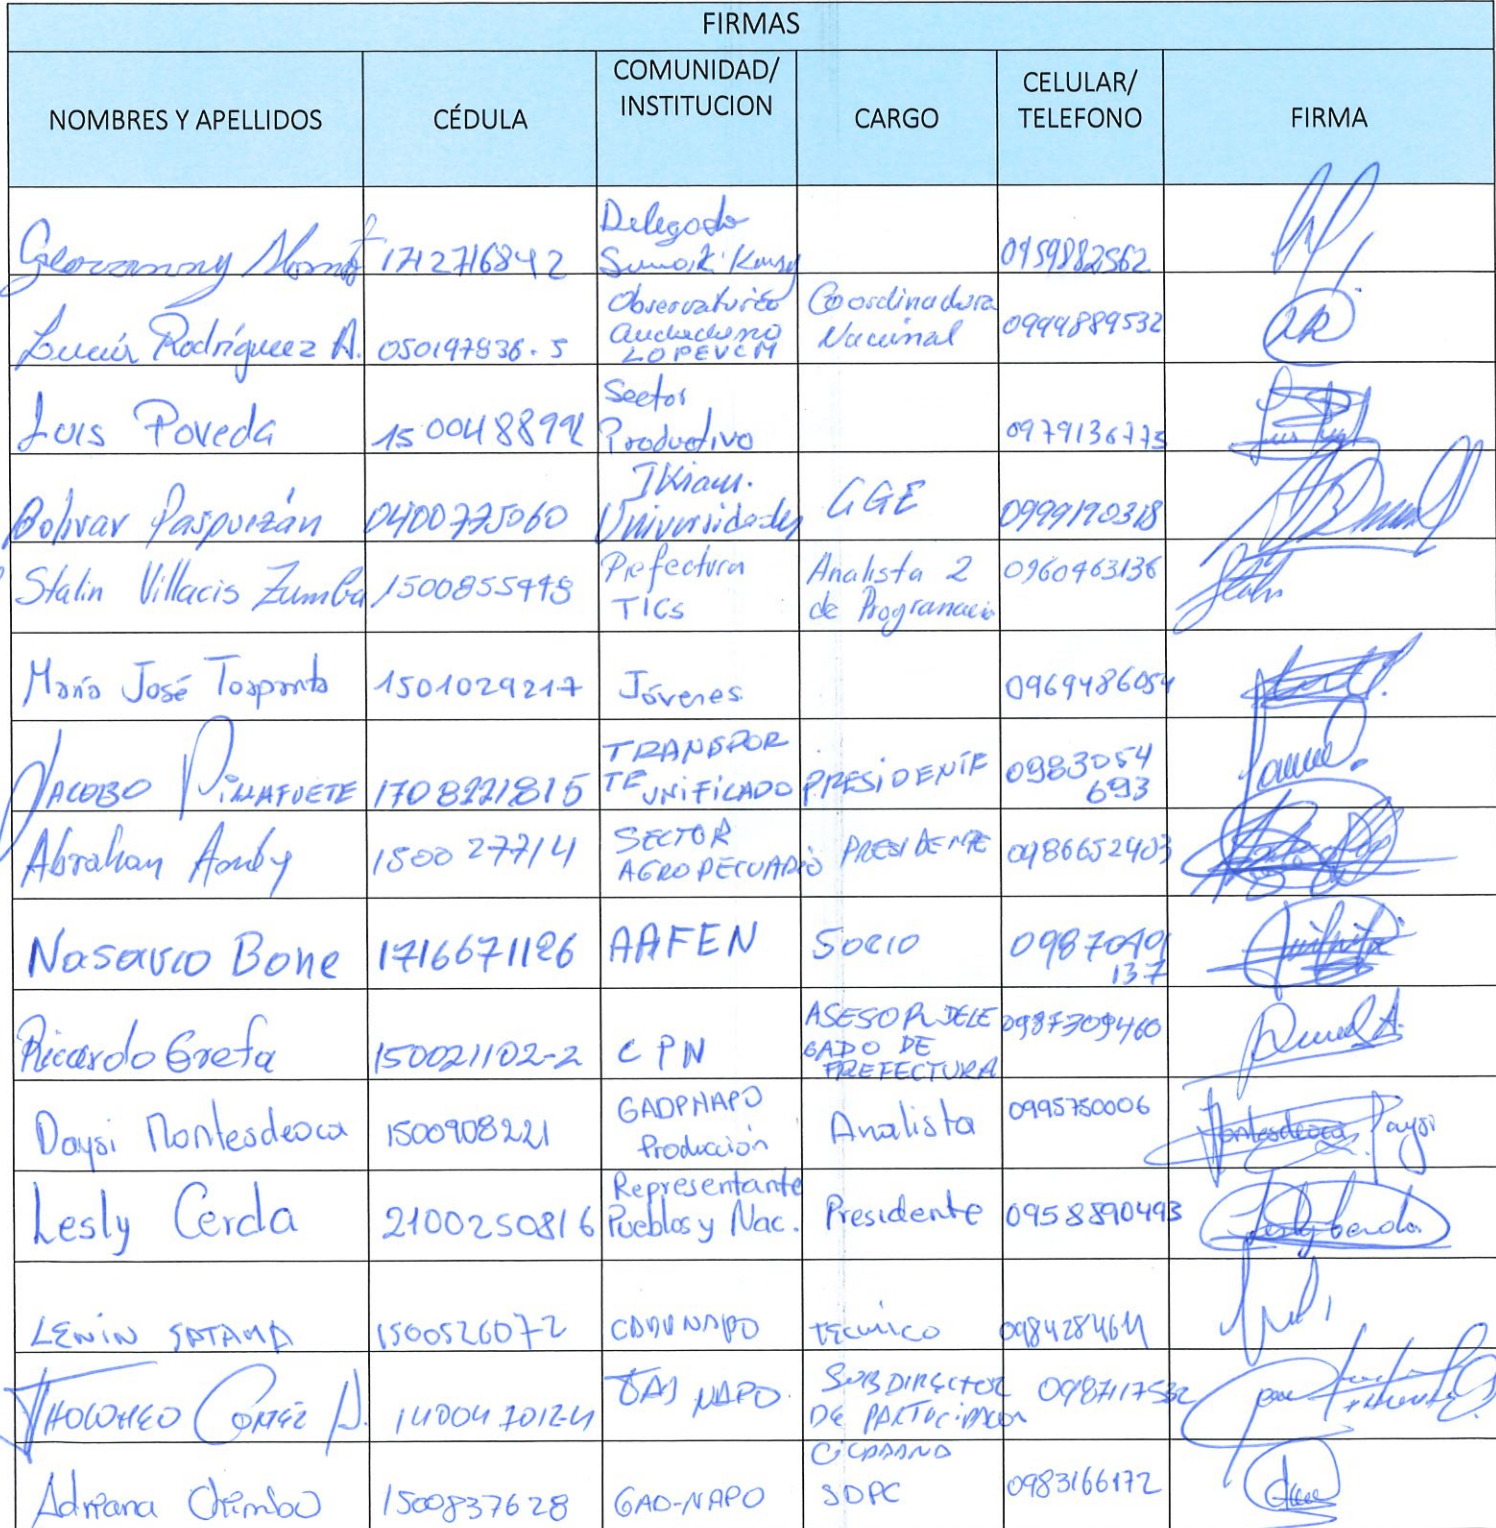 FIRMAS
NOMBRES Y APELLIDOS CÉDULA COMUNIDAD/ INSTITUCION CARGO CELULAR/ TELEFONO FIRMA
1712716842 Delegado 0959882562
Rodríguez A. 050197836-5 Coordinadora Nacional 0999889532
LOPEVCM
Luis Poveda Sector Productivo 0979136775
Bolivar Paspuezán 0400775060 Ikiam. Universidades CGE 0999190318
Stalin Villacis Zumba 1500855448 Prefectura TICs Analista 2 de Programació 0960463136
María José Toapanta 1501029217 Jóvenes 0969486054
JACOBO 1708221815 TRANSPORTE UNIFICADO PRESIDENTE 0983054693
Abrahan 150027714 SECTOR AGROPECUARIO PRESIDENTE 0986652403
Bone 1716671126 AAFEN Socio
Ricardo Grefa 150021102-2 CPN ASESOR DELEGADO DE PREFECTURA 0987309460
Daysi Montesdeoca 1500908221 GADPNAPO Producción Analista 0995750006
Montesdeoca Daysi
Lesly Cerda 2100250816 Representante Pueblos y Nac. Presidente 0958890493
Lesly Cerda
LENIN 1500526072 Técnico 0984284611
NAPO. SUBDIRECTOR DE PARTICIPACION CIUDADANA 0987117532
Adriana Chimbo 1500837628 GAD-NAPO SDPC 0983166172